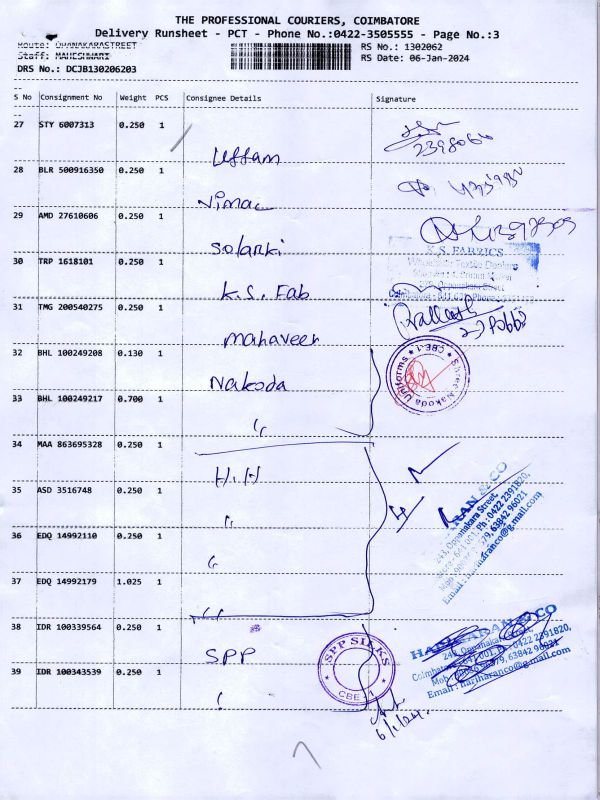 THE PROFESSIONAL COURIERS, COIMBATORE
Delivery Runsheet - PCT - Phone No.:0422-3505555 - Page No.:3
Route: OPPANAKARASTREET
Staff: MAHESHWARI
DRS No.: DCJB130206203
RS No.: 1302062
RS Date: 06-Jan-2024
S No Consignment No Weight PCS Consignee Details Signature
27 STY 6007313 0.250 1
Uttam
2398066
28 BLR 500916350 0.250 1
Vimac
29 AMD 27610606 0.250 1
Solanki
K.S. FABZICS
30 TRP 1618101 0.250 1
K.S. Fab
31 TMG 200540275 0.250 1
Mahaveer
32 BHL 100249208 0.130 1
Nakoda
Shree Nakoda Uniforms CBE-1
33 BHL 100249217 0.700 1
"
34 MAA 863695328 0.250 1
H.H
35 ASD 3516748 0.250 1
"
4
243, Oppanakara Street,
Ph : 0422 2391820,
63842 96021
Email : hariharanco@gmail.com
36 EDQ 14992110 0.250 1
"
37 EDQ 14992179 1.025 1
"
38 IDR 100339564 0.250 1
SPP
SPP SILKS CBE-1
HARIHARAN & CO
243, Oppanakara Street,
Coimbatore - 641 001. Ph : 0422 2391820,
63842 96021
Email : hariharanco@gmail.com
39 IDR 100343539 0.250 1
6/1/24.